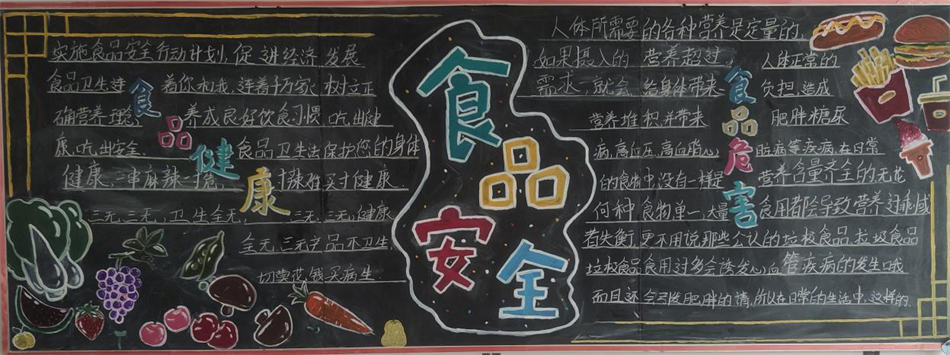 实施食品安全行动计划,促进经济发展
食品卫生连着你和我,连着千万家,树立正
确营养理念,养成良好饮食习惯,吃出健
康,吃出安全。食品卫生法保护您的身体
健康,一串麻辣
三无,三无,卫生全无,三无,三无,健康
全无,三无产品不卫生
切莫花钱买病生
食品健康
食品
安全
人体所需要的各种营养是定量的,
如果摄入的营养超过人体正常的
需求,就会给身体带来负担,造成
营养堆积并带来肥胖糖尿
病,高血压,高血脂,心脏病等疾病,在日常
的食物中没有一样是营养含量齐全的无论
何种食物单一,大量食用都会导致营养过剩或
者失衡,更不用说那些公认的垃圾食品,垃圾食品
垃圾食品食用过多会诱发心血管疾病的发生哦
而且还会引发肥胖的情,所以在日常的生活中,这样的
食品危害